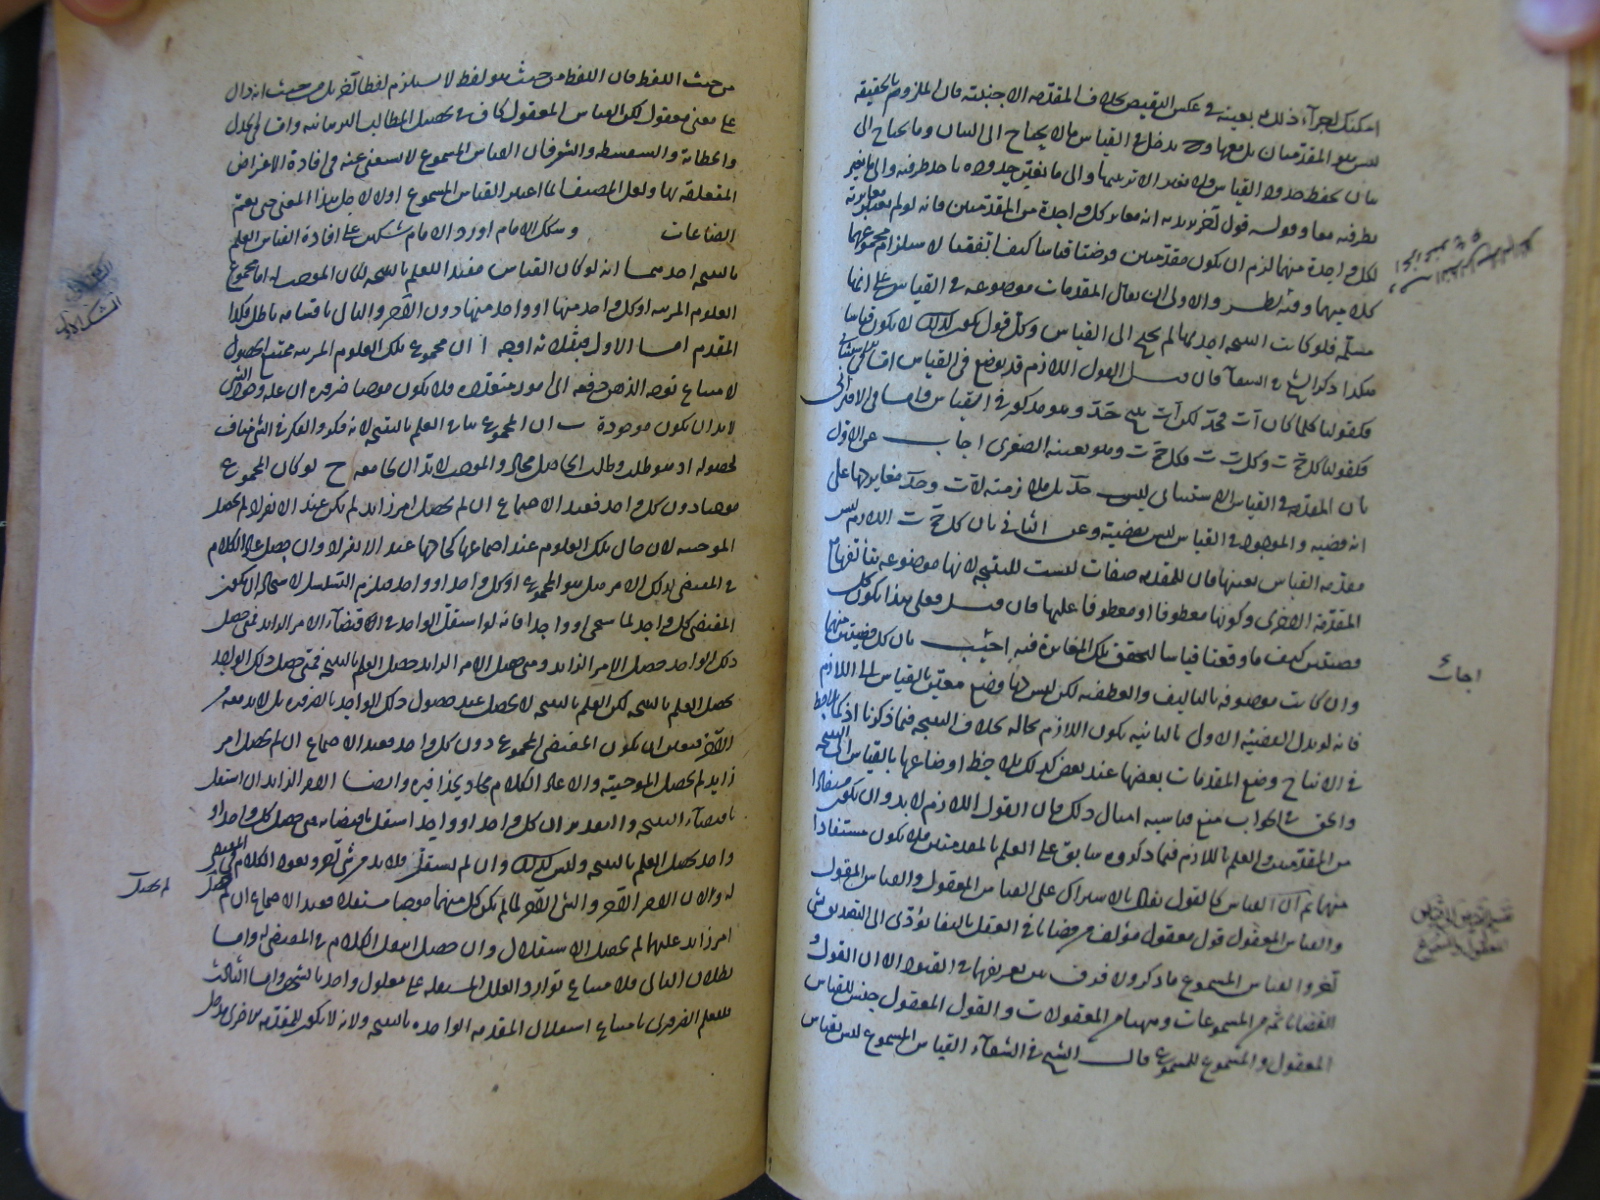 امكنك اجرآء ذلك بعينه في عكس النقيض بخلاف المقدمه الاجنبية فان الملزوم بالحقيقة
ليس هو المقدمتان بل معها وح يدخل في القياس ما لا يحتاج الى البيان وما يحتاج الى
بيان يحفظ حدود القياس ولا تغير الا ترتيبها والى ما يغير حدوده باحد طرفيه والى ما يغير
بطرفيه معا وقوله قول آخر يريد به انه مغاير كل واحدة من المقدمتين فانه لو لم يعتبر مغايرته
لكل واحدة منهما لزم ان يكون مقدمتين فرضتا قياسا كيف اتفقتا لاستلزام مجموعهما
كلا منهما وفيه نظر والاولى ان يقال المقدمات موضوعه في القياس على انها
مسلمة فلو كانت النتيجه احديهما لم يحتج الى القياس وكل قول يكون كذلك لا يكون قياسا
هكذا ذكر الشيخ في الشفآء فان قيل القول اللازم قد يوضع في القياس اما في الاستثنائي
فكقولنا كلما كان آب فجد لكن آب ينتج جد وهو مذكور في القياس واما في الاقتراني
فكقولنا كل ج ب وكل ب ب فكل ج ب وهو بعينه الصغرى اجاب عن الاول
بان المقدم في القياس الاستثنائي ليس جد بل ملازمته لآب وجد مغاير لها على
انه قضيه والموجود في القياس ليس بقضية وعن الثاني بان كل ج ب اللازم ليس
مقدمه القياس بعينها فان للمقدمه صفات ليست للنتيجه لانها موضوعه بتأتفها مع
المقدمة الاخرى وكونها معطوفا او معطوفا عليها فان قيل فعلى هذا يكون كل
قضيتين كيف ما وقعتا قياسا لتحقق تلك المغايرة فيه اجيب بان كل قضيتين منهما
وان كانت موصوفه بالتاليف والعطفيه لكن ليس لها وضع معين بالقياس الى اللازم
فانه لو بدل القضية الاولى بالثانية يكون اللازم بحاله بخلاف النتيجه فيما ذكرنا اذ كما يلاحظ
في الانتاج وضع المقدمات بعضها عند بعض كذلك يلاحظ اوضاعها بالقياس الى النتيجه
والحق في الجواب منع قياسيه امثال ذلك فان القول اللازم لا بد وان يكون مستفادا
من المقدمتين والعلم باللازم فيما ذكروه سابق على العلم بالمقدمتين فلا يكون مستفادا
منهما ثم ان القياس كالقول يقال بالاشتراك على القياس المعقول والقياس المقول
والقياس المعقول قول معقول مؤلف من قضايا في العقل تاليفا يؤدى الى التصديق بشئ
آخر والقياس المسموع ما ذكر ولا فرق بين تعريفهما في القيود الا ان القول و
القضايا ثمه من المسموعات وههنا من المعقولات والقول المعقول جنس للقياس
المعقول والمسموع للمسموع قال الشيخ في الشفآء القياس المسموع ليس بقياس
اجاب
تقسيم القياس الى القياس
المعقول والمسموع
من حيث اللفظ فان اللفظ من حيث هو لفظ لا يستلزم لفظا آخر بل من حيث انه دال
على معنى معقول لكن القياس المعقول كاف في تحصيل المطالب البرهانيه واما في الجدل
والخطابة والسفسطه والشعر فان القياس المسموع لا يستغنى عنه في افادة الاغراض
المتعلقه بها ولعل المصنف انما اعتبر القياس المسموع اولا لاجل هذا المعنى حتى يعم
الصناعات وشكك الامام اورد الامام شكين على افادة القياس العلم
بالنتيجه احدهما انه لو كان القياس مفيدا للعلم بالنتيجه لكان الموجب له اما مجموع
العلوم المرتبه او كل واحد منها او واحد منها دون الآخر والتالى باقسامه باطل فكذا
المقدم اما الاول فبثلاثه اوجه ا ان مجموع تلك العلوم المرتبه ممتنع الحصول
لامتناع توجه الذهن دفعه الى امور متعدده فلا يكون موجبا ضرورة ان علة وجود الشئ
لابد ان يكون موجودة ب ان المجموع ينافى العلم بالنتيجه لانه فكر والفكر في الشئ ينافى
لحصوله اذ هو طلب وطلب الحاصل محال والموجب لابد ان يجامعه ج لو كان المجموع
موجبا دون كل واحد فعند الاجتماع ان لم يحصل امر زايد لم يكن عند الانفراد لم يحصل
الموجبيه لان حال تلك العلوم عند اجتماعها كحالها عند الانفراد وان حصل عاد الكلام
في المقتضى لذلك الامر هل هو المجموع او كل واحد او واحد فيلزم التسلسل لاستحاله ان يكون
المقتضى كل واحد لما سيجئ او واحدا فانه لو استقل الواحد في اقتضآء الامر الزايد فمتى حصل
ذلك الواحد حصل الامر الزايد ومتى حصل الامر الزايد حصل العلم بالنتيجه فمتى حصل ذلك الواحد
يحصل العلم بالنتيجه لكن العلم بالنتيجه لا يحصل عند حصول ذلك الواحد بالضروره بل لابد معه من
الآخر فتعين ان يكون المقتضى المجموع دون كل واحد فعند الاجتماع ان لم يحصل امر
زايد لم يحصل الموجبية والا عاد الكلام بحذافيره وايضا الامر الزايد ان استقل
باقتضآء النتيجه والتقدير ان كل واحد او واحدا استقل باقتضائه فمتى حصل كل واحد او
واحد يحصل العلم بالنتيجه وليس كذلك وان لم يستقل فلا بد من شئ آخر ويعود الكلام في المقتضى
له ولان الامر الآخر والشئ الآخر لما لم يكن كل منهما موجبا مستقلا فعند الاجتماع ان لم يحصل
امر زايد عليهما لم يحصل الاستقلال وان حصل انتقل الكلام في المقتضى له واما
بطلان التالى فلامتناع توارد العلل المستقله على معلول واحد بالشخص واما الثالث
فللعلم الضرورى بامتناع استقلال المقدمه الواحده بالنتيجه ولانه لا يكون للمقدمه الاخرى مدخل
الشك الاول
لم يحصل